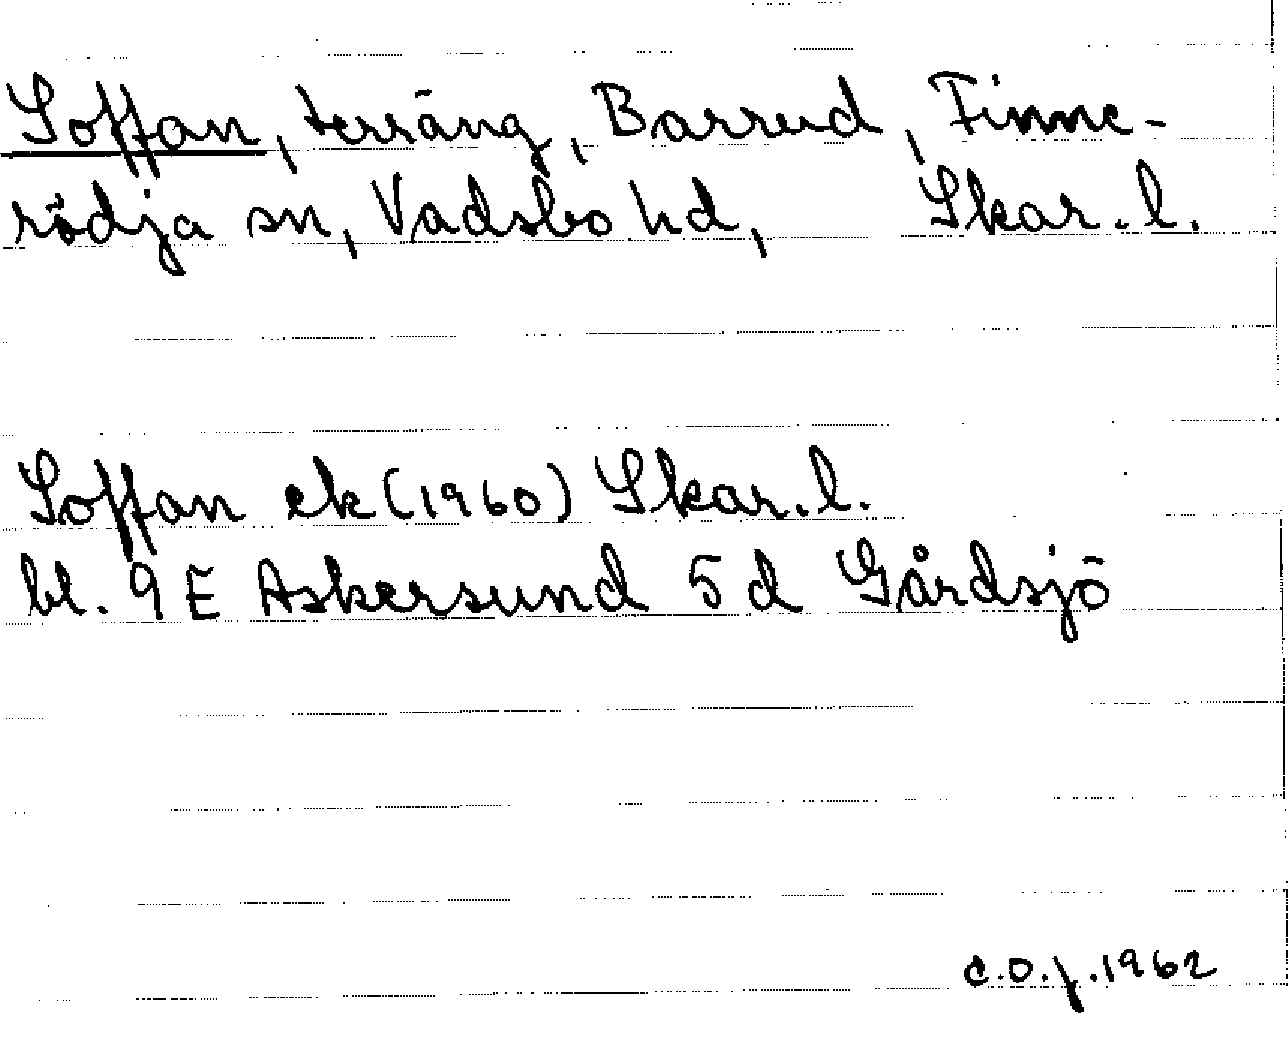 Soffan, terräng, Barrud, Finne-
rödja sn, Vadsbo hd, Skar. l.
Soffan ek (1960) Skar. l.
bl. 9 E Askersund 5 d Gårdsjö
C.O.J. 1962